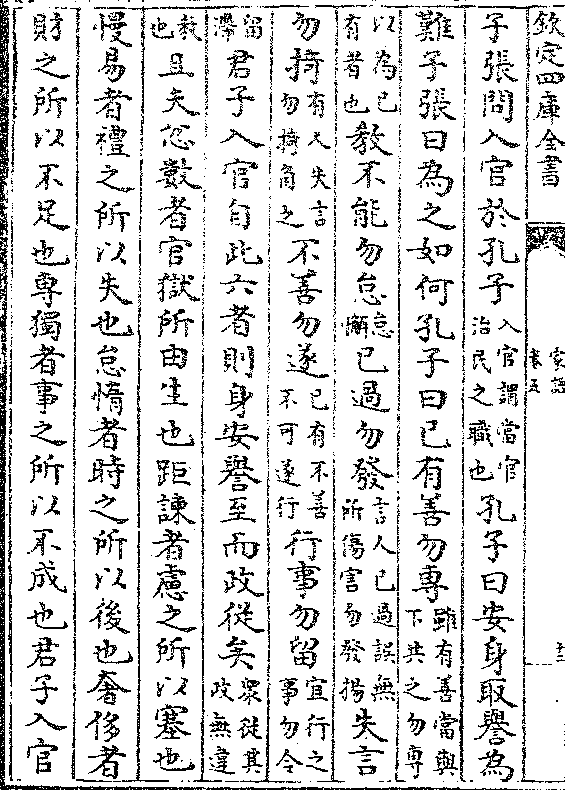 欽定四庫全書
家語
卷五
子張問入官於孔子入官謂當官治民之職也孔子曰安身取譽為
難子張曰為之如何孔子曰已有善勿專雖有善當與下共之勿專
以為已有者也教不能勿怠怠懈已過勿發言人已過誤無所傷害勿發揚失言
勿掎有人失言勿掎角之不善勿遂已有不善不可遂行行事勿留宜行之事勿令
留滯君子入官自此六者則身安譽至而政從矣眾從其政無違
教也且夫忿數者官獄所由生也距諫者慮之所以塞也
慢易者禮之所以失也怠惰者時之所以後也奢侈者
財之所以不足也專獨者事之所以不成也君子入官